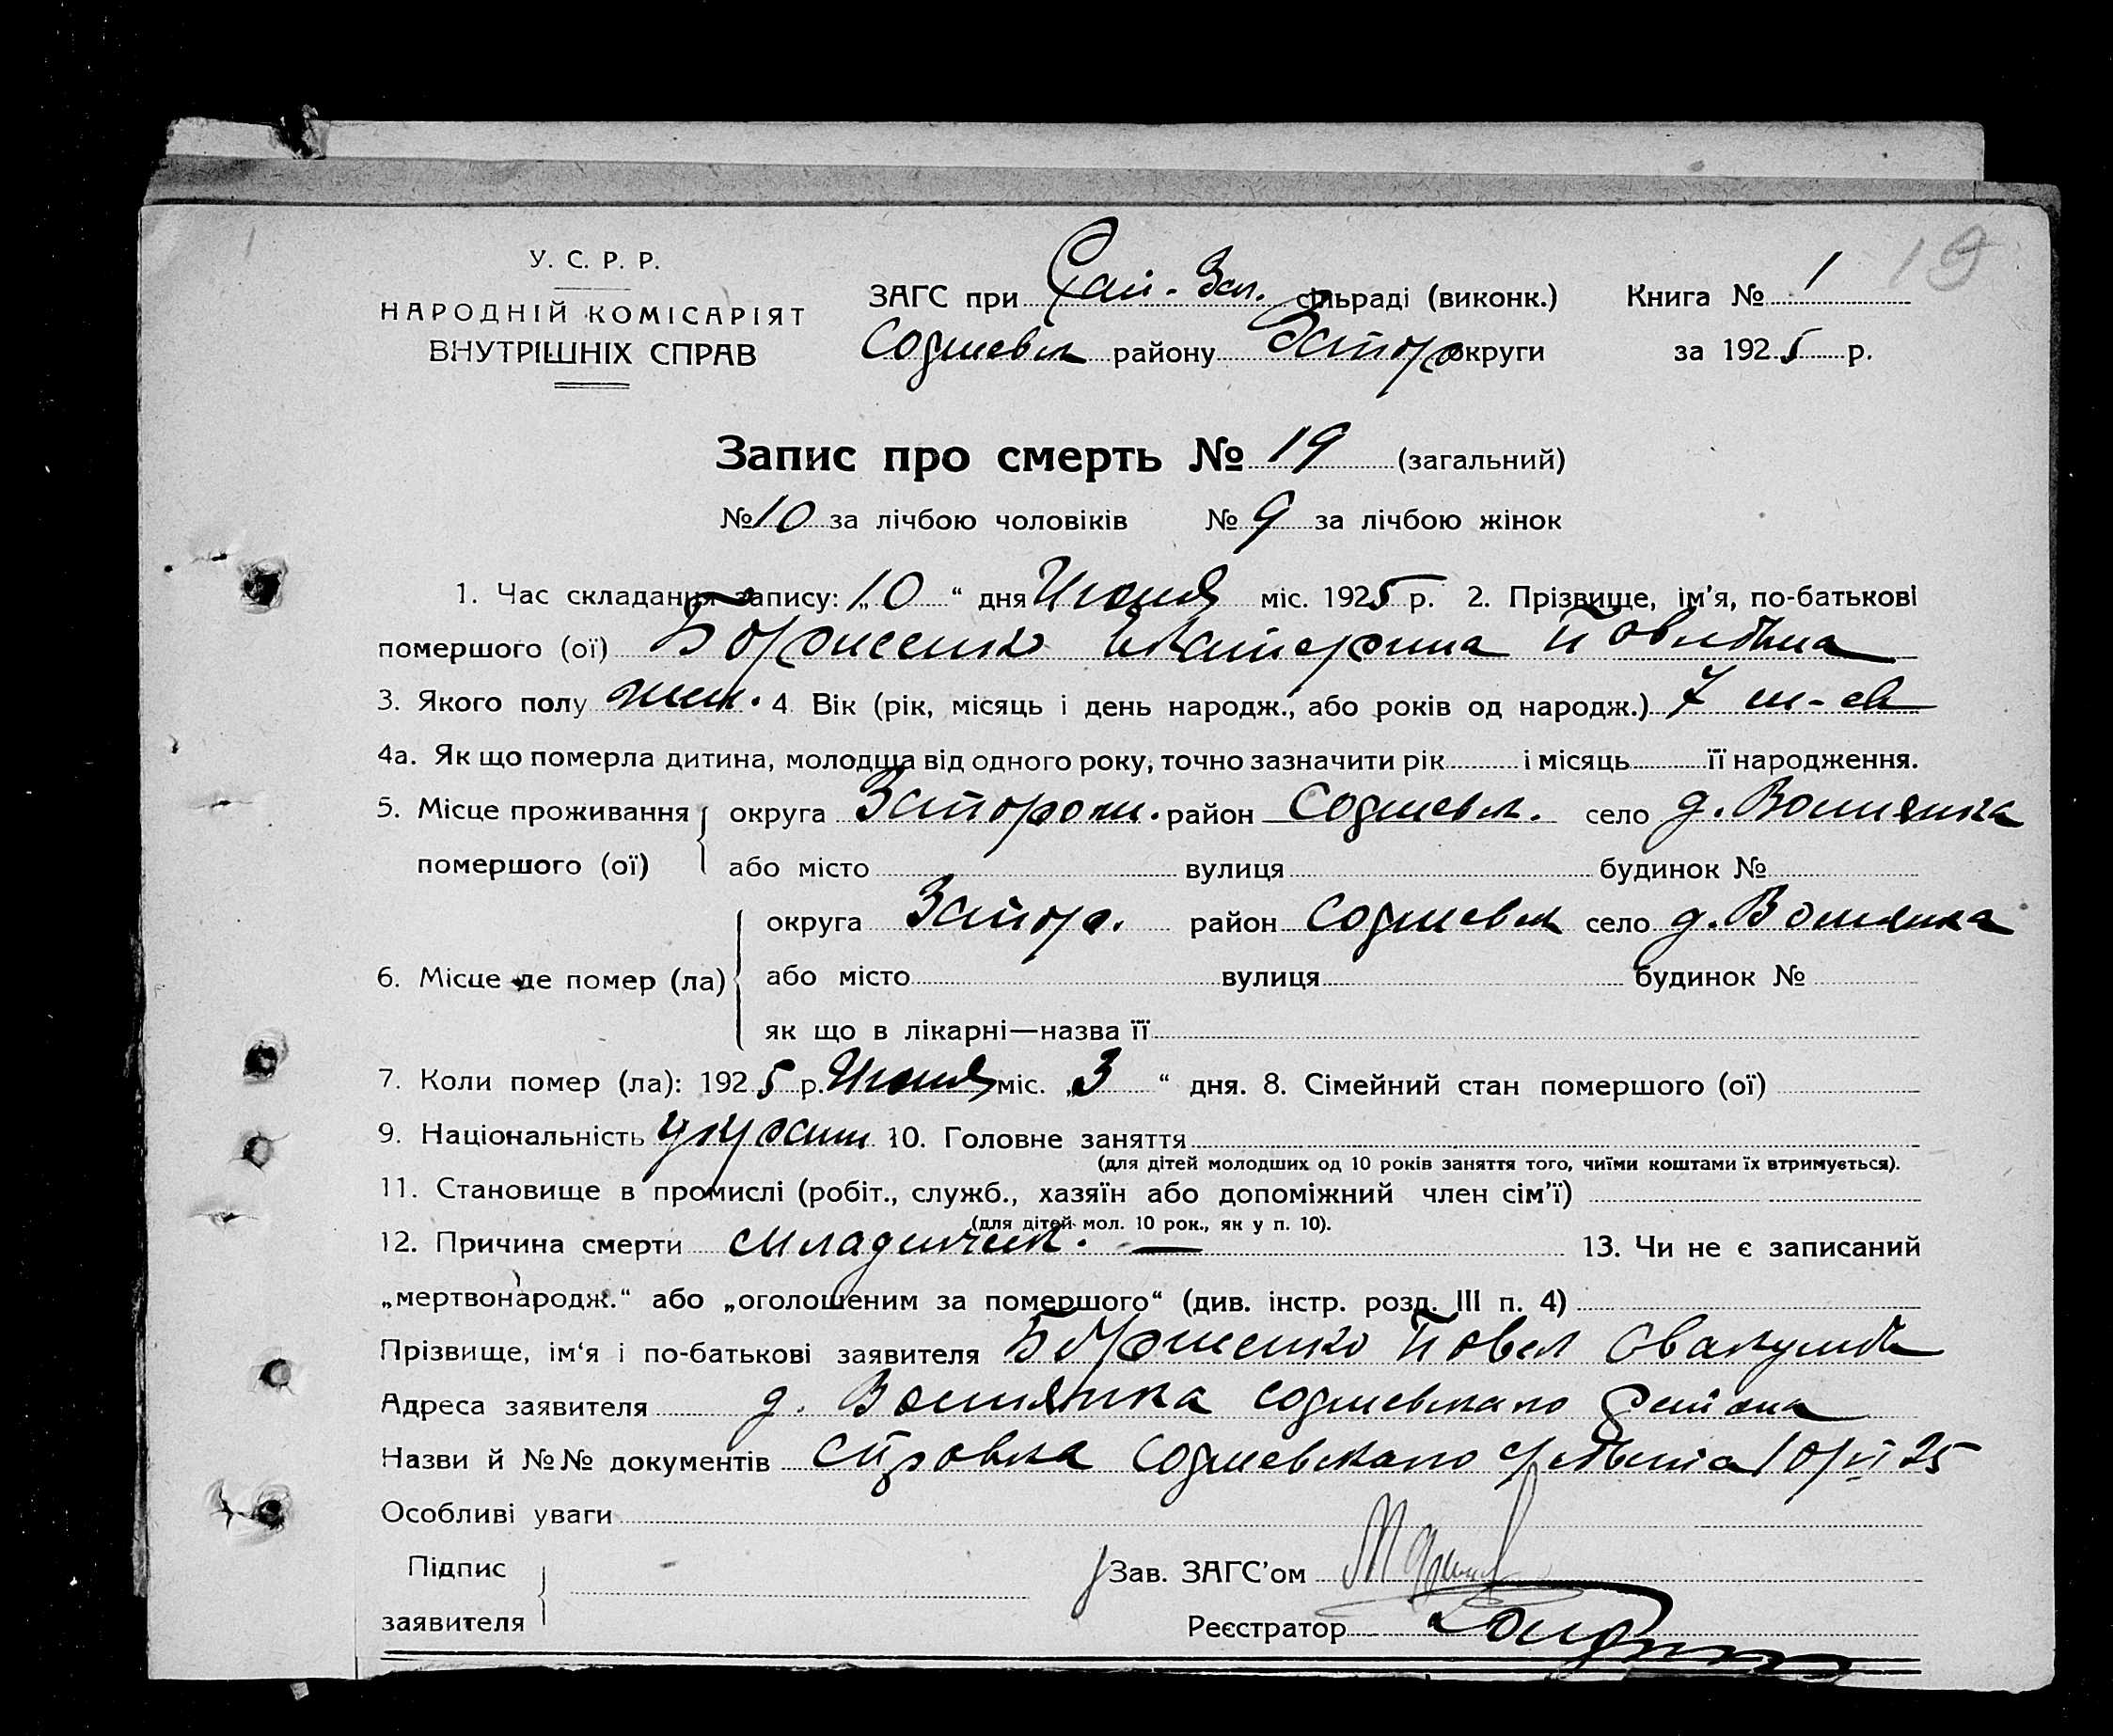 19
У. С. Р. Р.
НАРОДНІЙ КОМІСАРІЯТ
ВНУТРІШНІХ СПРАВ
ЗАГС при сільраді (виконк.) Книга № 1
району Запор округи за 1925 р.
Запис про смерть № 19 (загальний)
№ 10 за лічбою чоловіків № 9 за лічбою жінок
1. Час складання запису: „10“ дня Июня міс. 1925 р. 2. Прізвище, ім'я, по-батькові
помершого (ої) Екатерина
3. Якого полу жен. 4 Вік (рік, місяць і день народж., або років од народж.) 7 м-ев
4а. Як що померла дитина, молодща від одного року, точно зазначити рік і місяць її народження.
5. Місце проживання округа Запорож. район село д.
помершого (ої) або місто вулиця будинок №
округа Запор. район село д.
6. Місце де помер (ла) або місто вулиця будинок №
як що в лікарні—назва її
7. Коли помер (ла): 1925 р. Июня міс. „3“ дня. 8. Сімейний стан помершого (ої)
9. Національність украин 10. Головне заняття
(для дітей молодших од 10 років заняття того, чиїми коштами їх втримується).
11. Становище в промислі (робіт., служб., хазяїн або допоміжний член сім'ї)
(для дітей мол. 10 рок., як у п. 10).
12. Причина смерти младенческ. — 13. Чи не є записаний
„мертвонародж.“ або „оголошеним за помершого“ (див. інстр. розд. III п. 4)
Прізвище, ім'я і по-батькові заявителя Повел
Адреса заявителя д. района
Назви й №№ документів Справка 10/VI 25
Особливі уваги
Підпис Зав. ЗАГС'ом
заявителя Реєстратор